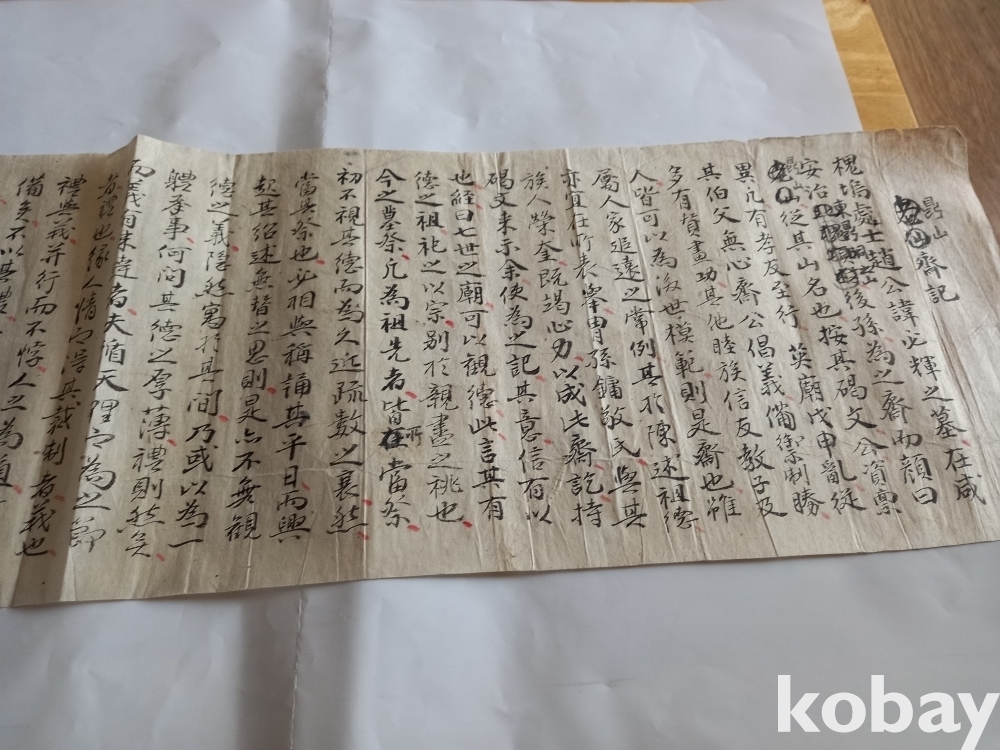 昆山齋記
槐塢處士趙公諱必輝之墓在咸
安治後孫為之齋而顔曰
昆山從其山名也按其碣文公資禀
異凡有孝友至行 英廟戊申亂從
其伯父無心齋公倡義備禦制勝
多有賛畫功其他睦族信友教子及
人皆可以為後世模範則是齋也雖
屬人家追遠之常例其於陳述祖德
亦宜在所表章胄孫鏞敏氏與其
族人榮奎既竭心力以成此齋訖持
碣文来示余使為之記其意信有以
也経曰七世之廟可以觀德此言其有
德之祖祀之以宗别於親盡之祧也
今之墓祭凡為祖先者皆所當祭
初不視其德而為久近疏數之衰然
當其祭也必相與稱誦其平日而興
起其紹述無替之思則是亦不無觀
德之義隱然寓於其間乃或以為一
軆峯事何問其德之厚薄禮則然矣
而義有未達者夫循天理而為之節
者禮也緣人情而淂其裁制者義也
禮與義并行而不悖人之為道
備多不以其禮
kobay